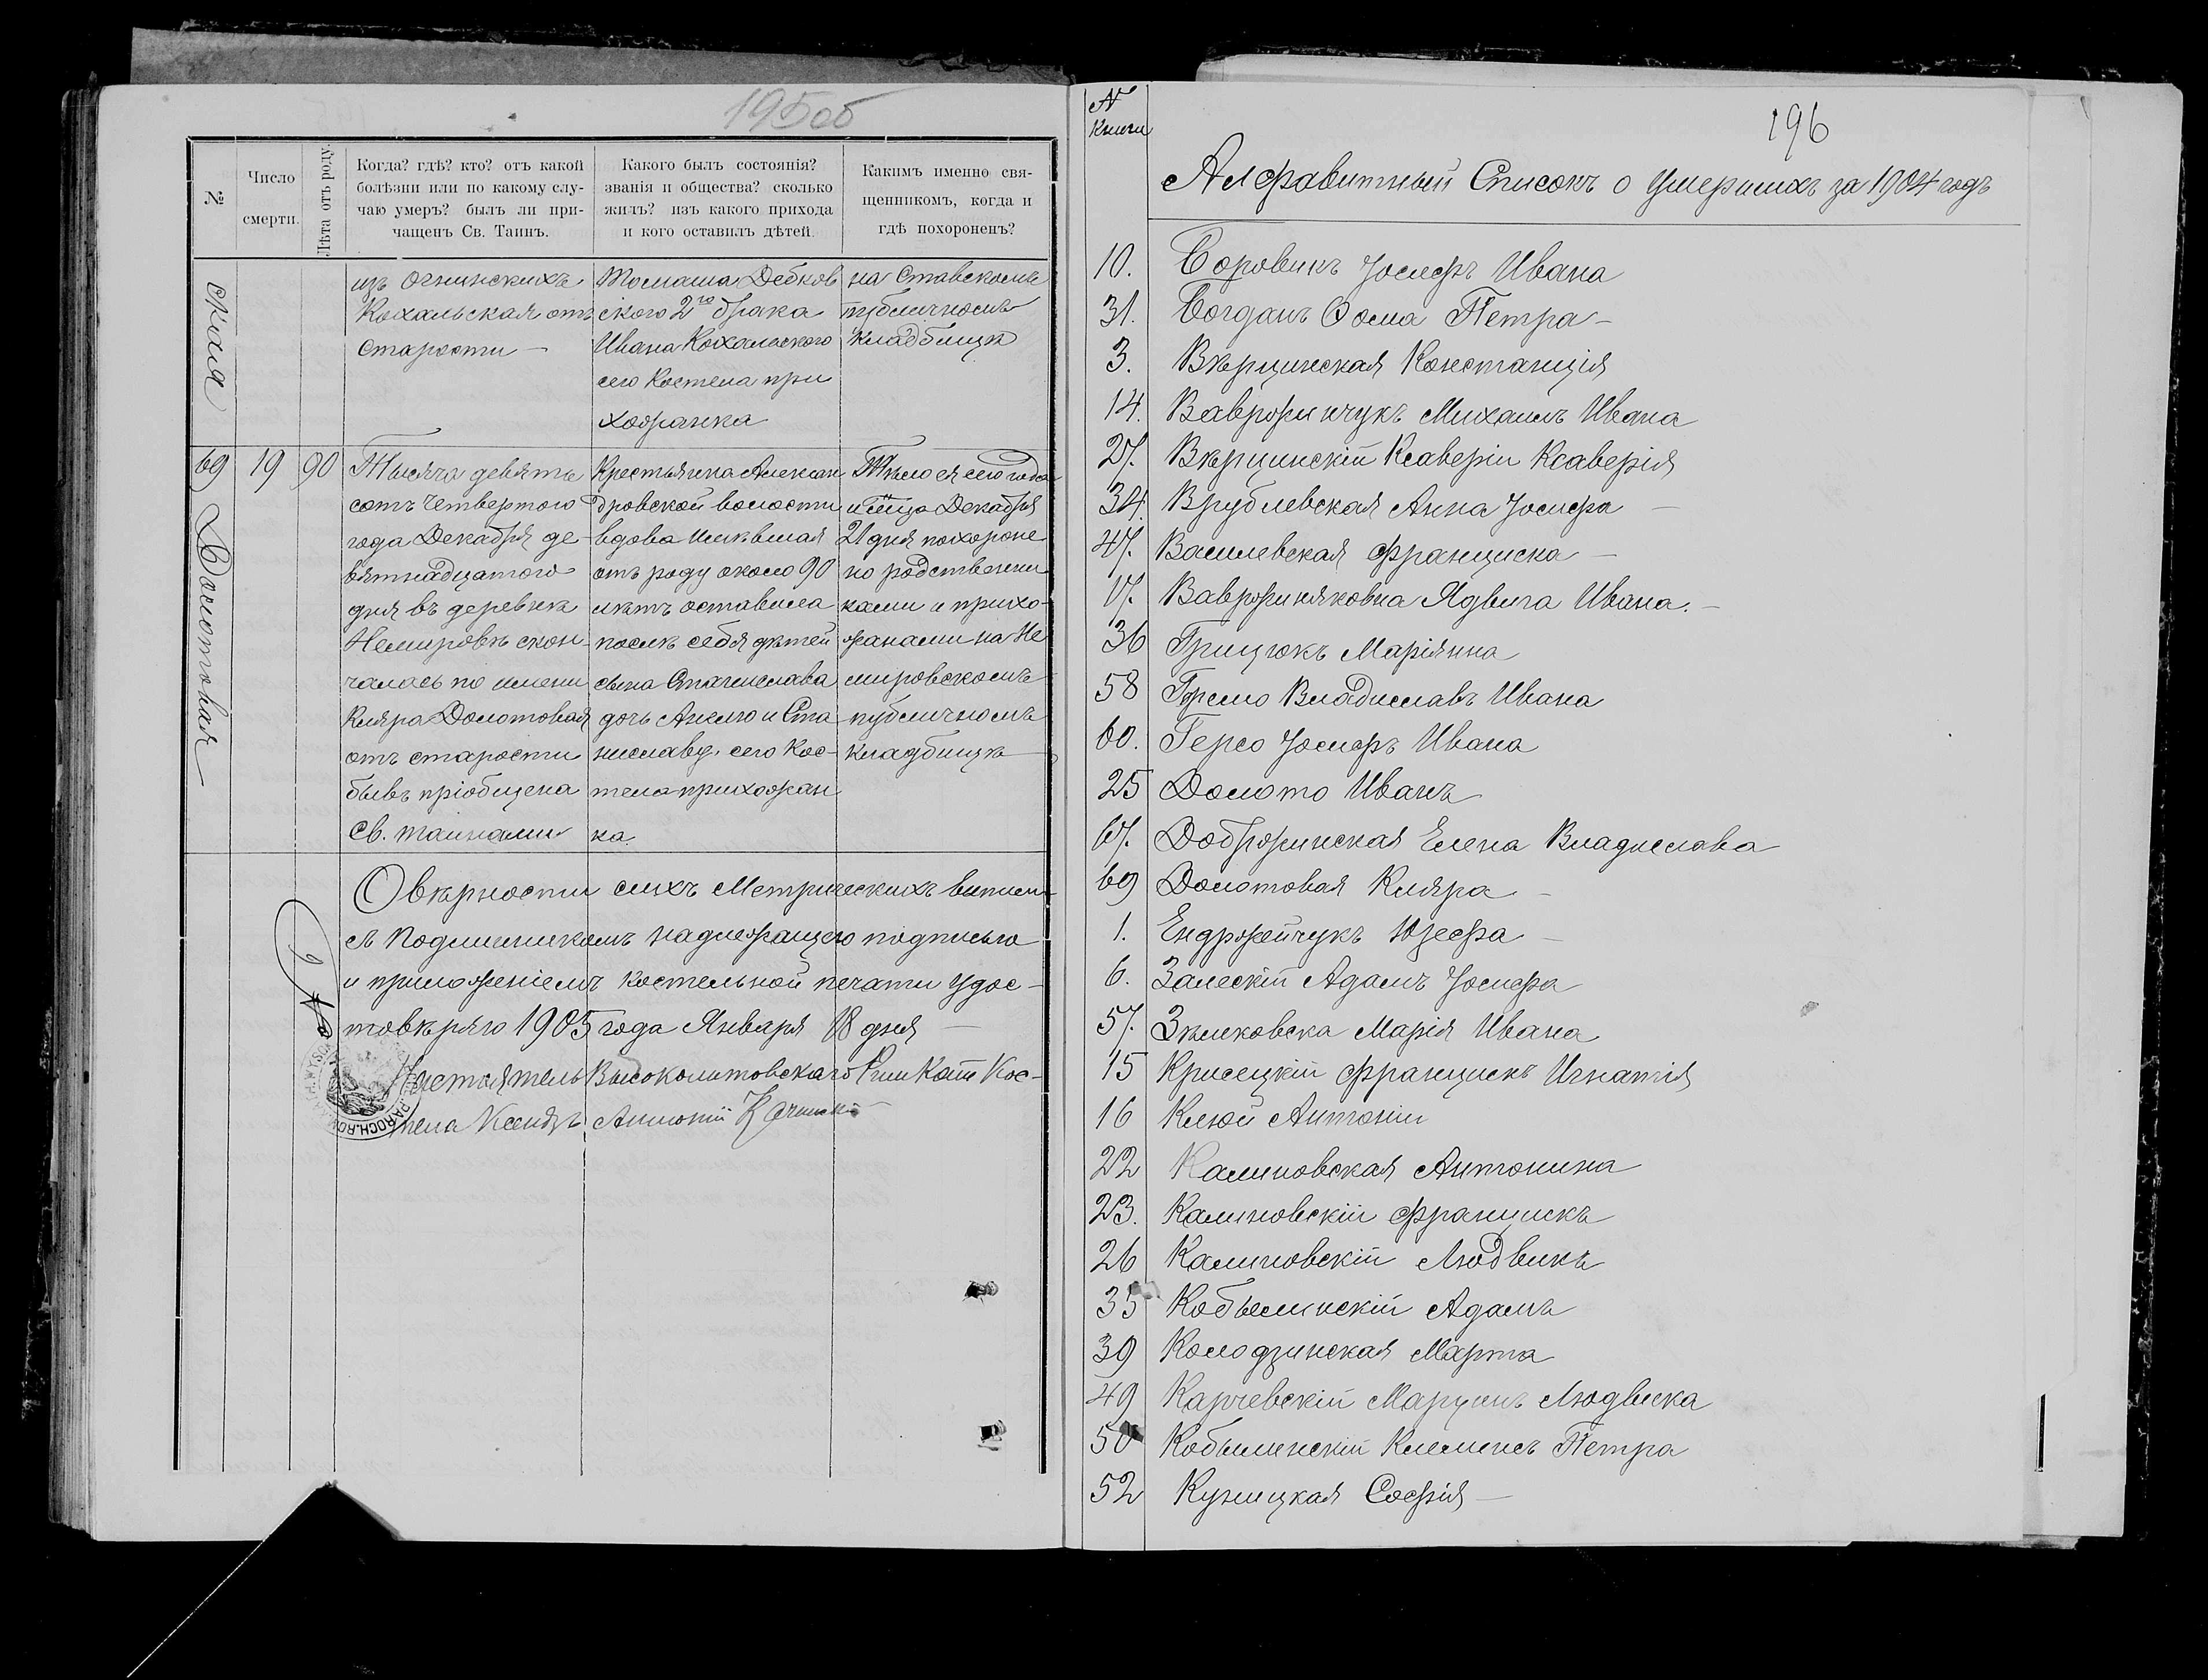 195об
№
Число смерти.
Лѣта отъ роду.
Когда? гдѣ? кто? отъ какой
болѣзни или по какому слу-
чаю умеръ? былъ ли при-
чащенъ Св. Таинъ.
Какого былъ состоянія?
званія и общества? сколько
жилъ? изъ какого прихода
и кого оставилъ дѣтей.
Какимъ именно свя-
щенникомъ, когда и
гдѣ похороненъ?
ская
изъ Огнинскихъ
Кохальская отъ
старости —
Томаша Дебков
ского 2го брака
Ивана Кохальского
сего Костела при
хожанка
на Ставскомъ
публичномъ
кладбищѣ
69
Долотовая
19
90
Тысяча девять
сотъ четвертого
года Декабря де-
вятнадцатого
дня въ деревнѣ
Немировѣ скон-
чалась по имени
Кляра Долотовая
отъ старости
бывъ пріобщена
Св. тайнами
Крестьянка Алексан
дровской волости
вдова имѣвшая
отъ роду около 90
лѣтъ оставила
послѣ себя дѣтей
сына Станислава
дочь Анелю и Ста
ниславу. сего Кос-
тела прихожан
ка.
Тѣло ея сего года
и мѣсца Декабря
21 дня похороне
но родственни
ками и прихо-
жанами на Не
мировскомъ
публичномъ
кладбищѣ
О вѣрности сихъ Метрическихъ
съ Подлинникомъ надлежащею подписью
и приложеніемъ костельной печати удос-
товѣряю 1905 года Января 18 дня —
Настоятель Высоколитовскаго Рим Кат Кос-
тела Ксендзъ Антоній
196
№
Книги
Алфавитный Списокъ о Умершихъ за 1904 годъ
10. Боровикъ Іосифъ Ивана
31. Богданъ Ѳома Петра —
3. Вѣрцинская Констанція
14. Вавржинчукъ Михаилъ Ивана
27. Вѣрцинскій Ксаверій Ксаверія
34. Врублевская Анна Іосифа —
47. Василевская Франциска —
17. Вавржиняковна Ядвига Ивана. —
36 Грицюкъ Маріянна
58 Гржесло Владиславъ Ивана
60. Герсо Іосифъ Ивана
25 Долото Иванъ
67. Добржинская Елена Владислава
69 Долотовая Кляра —
1. Ендржейчукъ Юзефа —
6. Залескій Адамъ Іосифа
57. Зѣлковска Марія Ивана
15 Крисецкій Францискъ Игнатія
16 Клюй Антоній
22 Калиновская Антонина
23. Калиновскій Францискъ
26 Калиновскій Людвикъ
35 Кобылинскій Адамъ
39 Колодзинская Марта
49 Карчевскій Марцинъ Людвика
50 Кобылинскій Клеменсъ Петра
52 Кузицкая Софія —